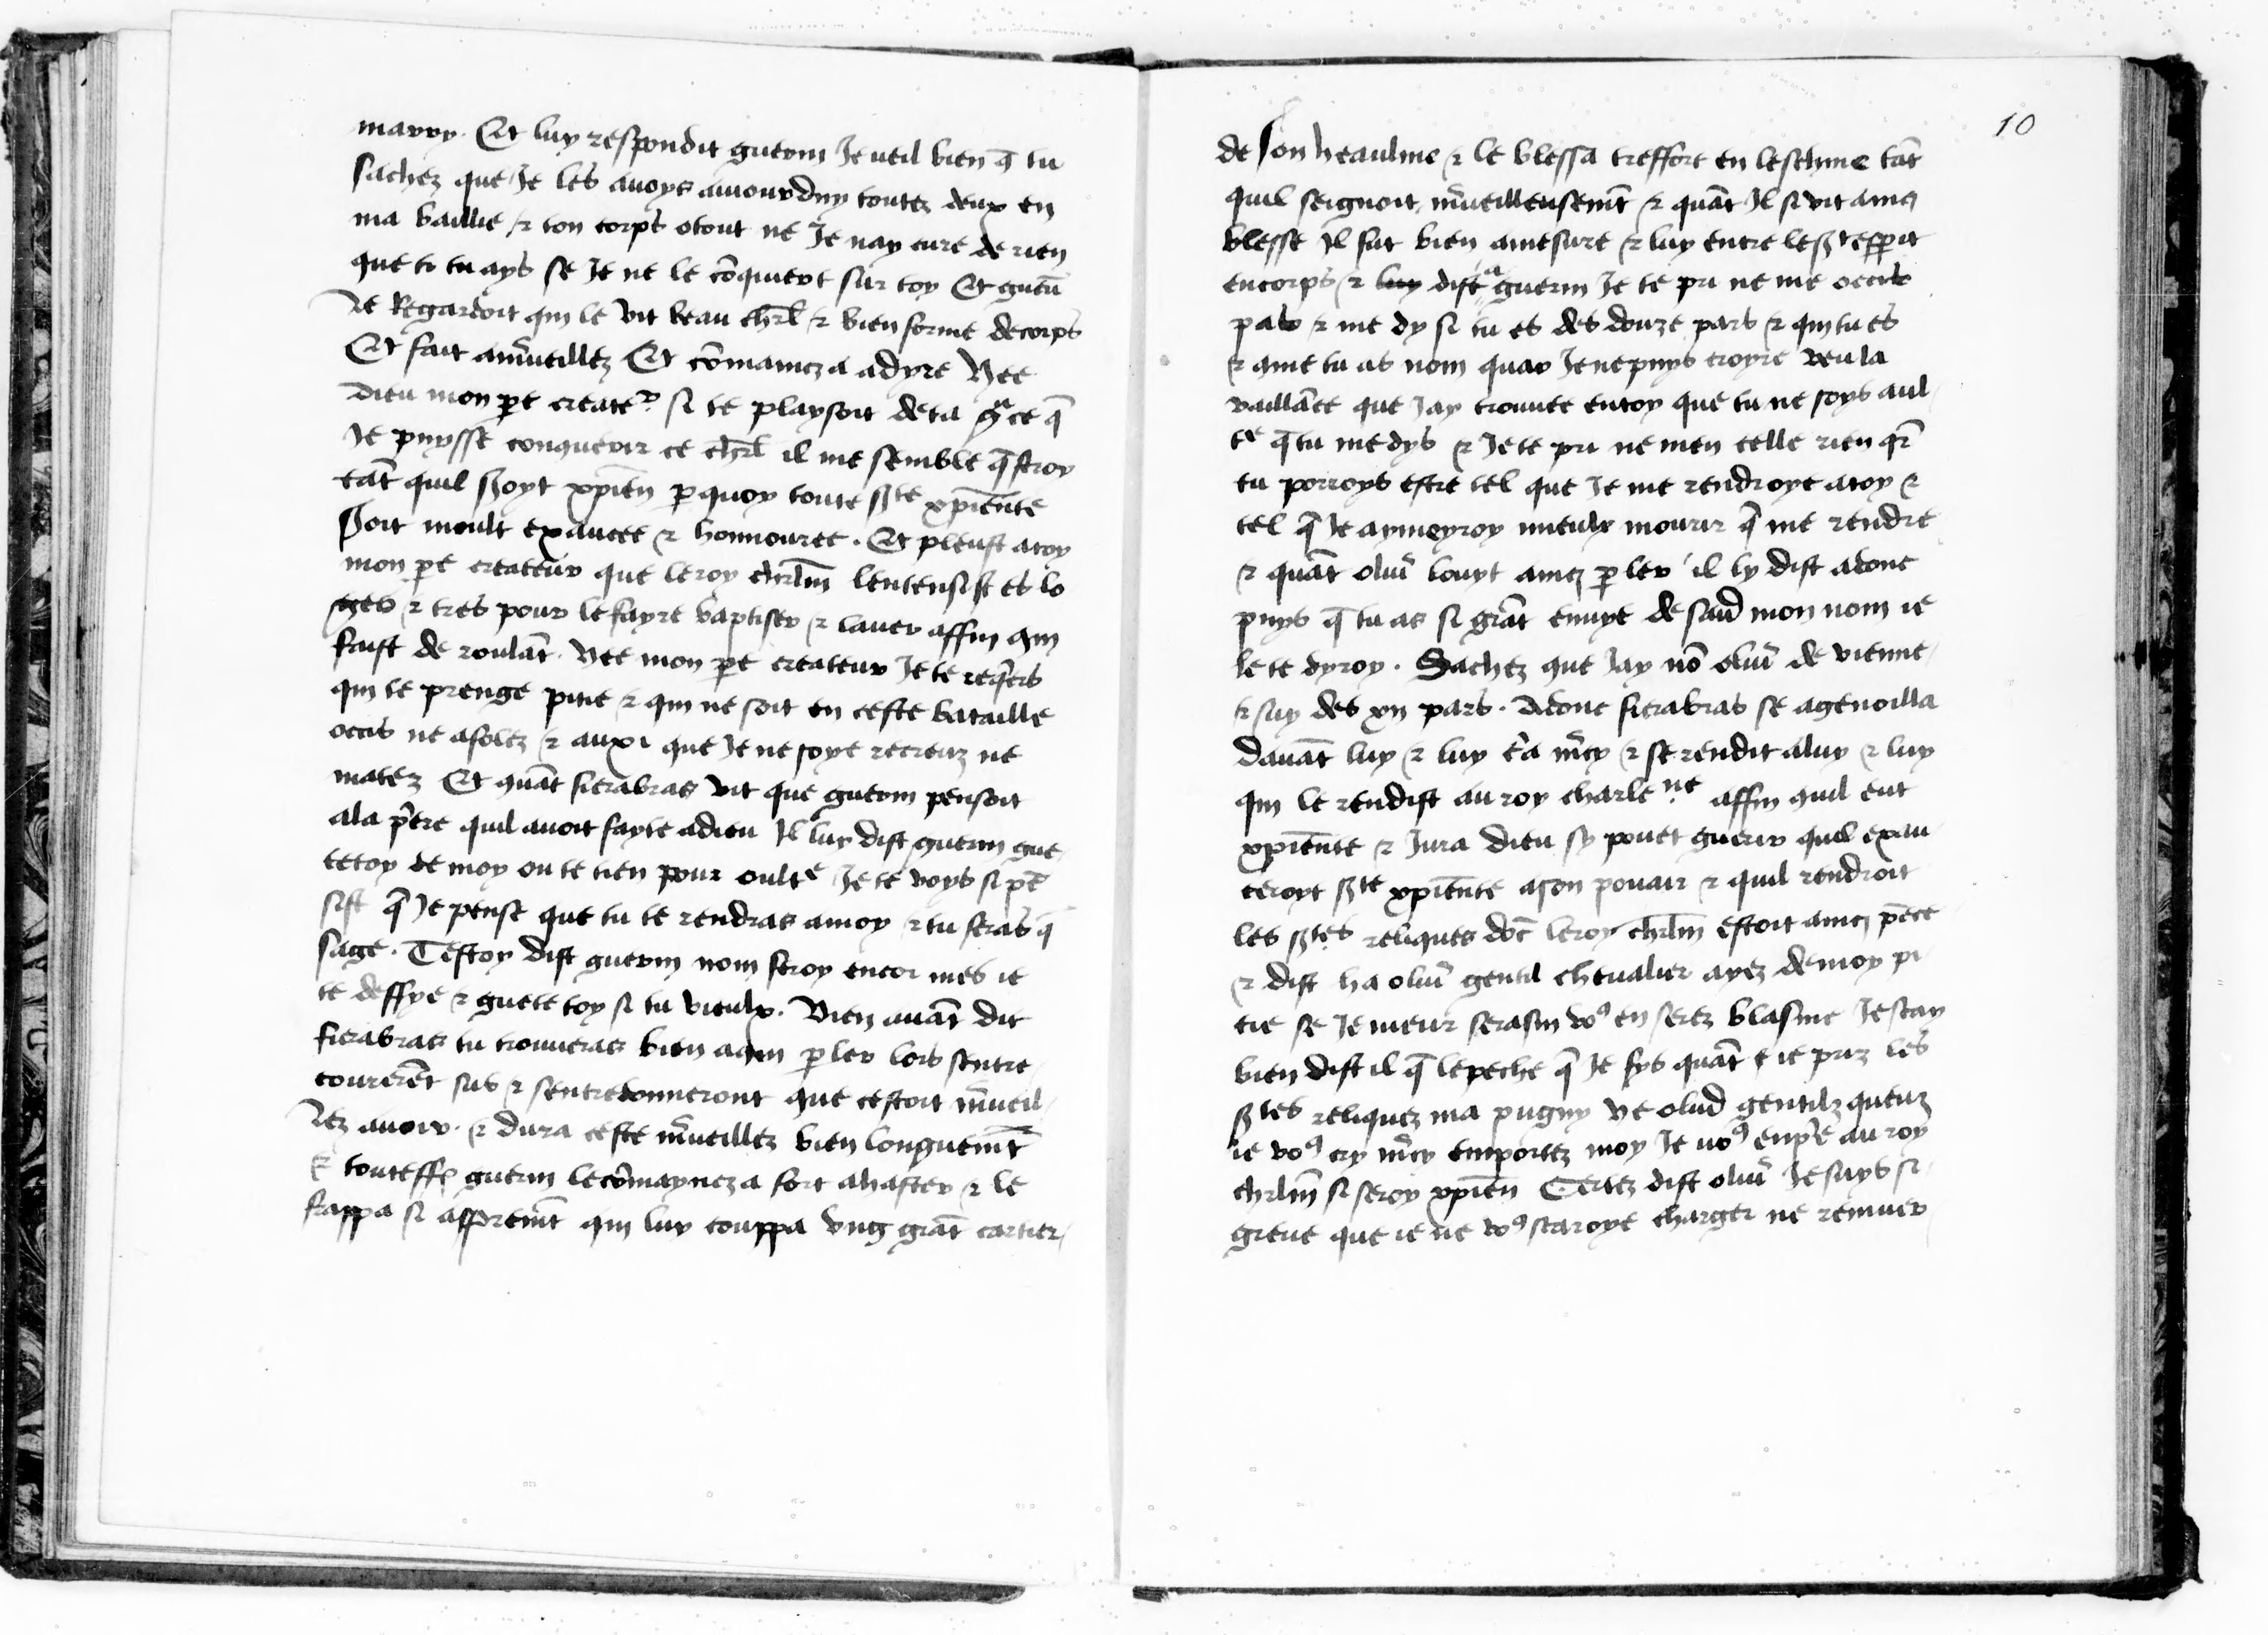 marry. Et luy respondit guerin Je veil bien q̄ tu
sachez que Je les avoys aivourduy toutez deux en
ma baillie & ton corps otout ne Je nay cure de rien
que tu ays se Je ne le cōquiert sur toy Et guerin
Le Regardoit qui le vit beau chr̄l & bien forme de corps
Et fait am̄veillez Et cōmancza adyre Hee
dieu mon pe creater si te playsoit de ta gace q̄
Je puysse conquerir ce chr̄l il me semble q̄ feroy
tāt quil soyt xpiēn p quoy toute ste xpiēnte
Soit moult exaucee & honnouree. Et pleust atoy
mon pe createur que le roy chrlm̄ lentensist es lo
ges & tres pour le fayre baptiser & laver affin qui
fust de roulāt. Hee mon pe createur Je te req̄rs
qui te prenge pitie & qui ne soit en ceste bataille
occis ne afolez & auxi que Je ne soye recreuz ne
matez Et quāt fierabras vit que guerin pensoit
ala p̄ere quil avoit fayte adieu Il luy dist guerin gue
te toy de moy ou te tien pour oulte Je te voys si pē
sist q̄ Je pense que tu te rendras amoy & tu feras q̄
sage. Testoy dist guerin nom feroy encor mes ie
te deffye & guete toy si tu vieulx. Bien avāt dit
fierabras tu trouveras bien aqui pler lors sentre
coururēt sus & sentredonneront que cestoit m̄veil
lez avoir. & dura ceste m̄veillez bien longuemt̄
& touteffe guerin le cōmayncza fort ahaster & le
frappa si aspremt̄ qui luy couppa ung grāt cartier
10
de son heaulme & le blessa treffort en leschine tāt
quil seignoit m̄veilleusemt̄ & quāt Il si vit ainci
blesse Il fut bien amesure & luy entre le st esperit
en corps & luy dist a guerin Je te pri ne me occis
pas & me dy si tu es des douze pars & qui tu es
& cume tu as nom quar Je ne puys croyre veu la
vaillāce que Jay trouvee en toy que tu ne soys aul
te q̄ tu me dys & Je te pri ne men celle rien qr̄
tu porroys estre tel que Je me rendroye atoy &
tel q̄ Je aymeyroy mieulx mourir q̄ me rendre
& quāt oliv̄ louyt ainci pler il ly dist adonc
puys q̄ tu as si grāt envye de sav̄ mon nom ie
le te dyroy. Sachez que Jay nō oliv̄ de vienne
& suy des xii pars. Adonc fierabras se agenoilla
davāt luy & luy c̄a m̄cy & se rendit aluy & luy
qui le rendist au roy charlene affin quil eut
xpiēnte & Jura dieu sy povet guerir quil exau
ceroyt ste xpiēnte ason povair & quil rendroit
les stes reliques dōt le roy chrlm̄ estoit ainci pēce
& dist ha oliv̄ gentil chevalier ayez de moy pi
tie se Je meur serasin vo9 en serez blasme Je scay
bien dist il q̄ le peche q̄ Je fys quāt ie priz les
stes reliquez ma pugny Ve oliv̄ gentilz queuz
ie vo9 cry m̄cy emportez moy Je vo9 enp̄e au roy
chrlm̄ si seroy xpiēn Certez dist oliv̄ Je suys si
greve que ie ne vo9 scaroye charger ne remuer